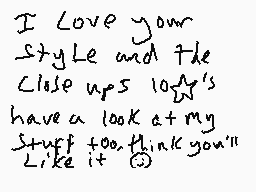 I Love your
style and the
close ups 10☆'s
have a look at my
stuff too, think you'll
Like it ☺